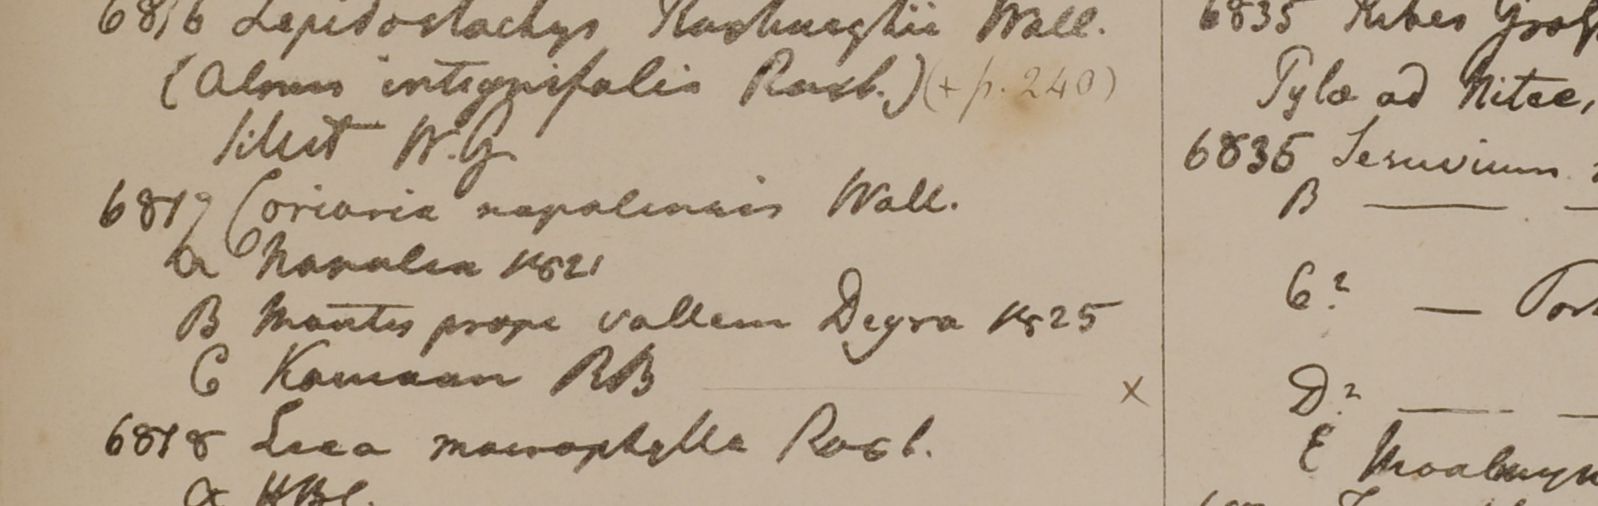 6816 Lepidostachys Roxburghii Wall.
(Alnus integrifolia Roxb.) (+ p. 240)
Silhet W.G.
6817 Coriaria napalensis Wall.
a Napalia 1821
B Montes prope vallem Deyra 1825
C Kamaon RB x
6818 Leea macrophylla Roxb.
a HBC.
6835 Ribes
ad
6836 Sesuvium
B
C?
D?
E